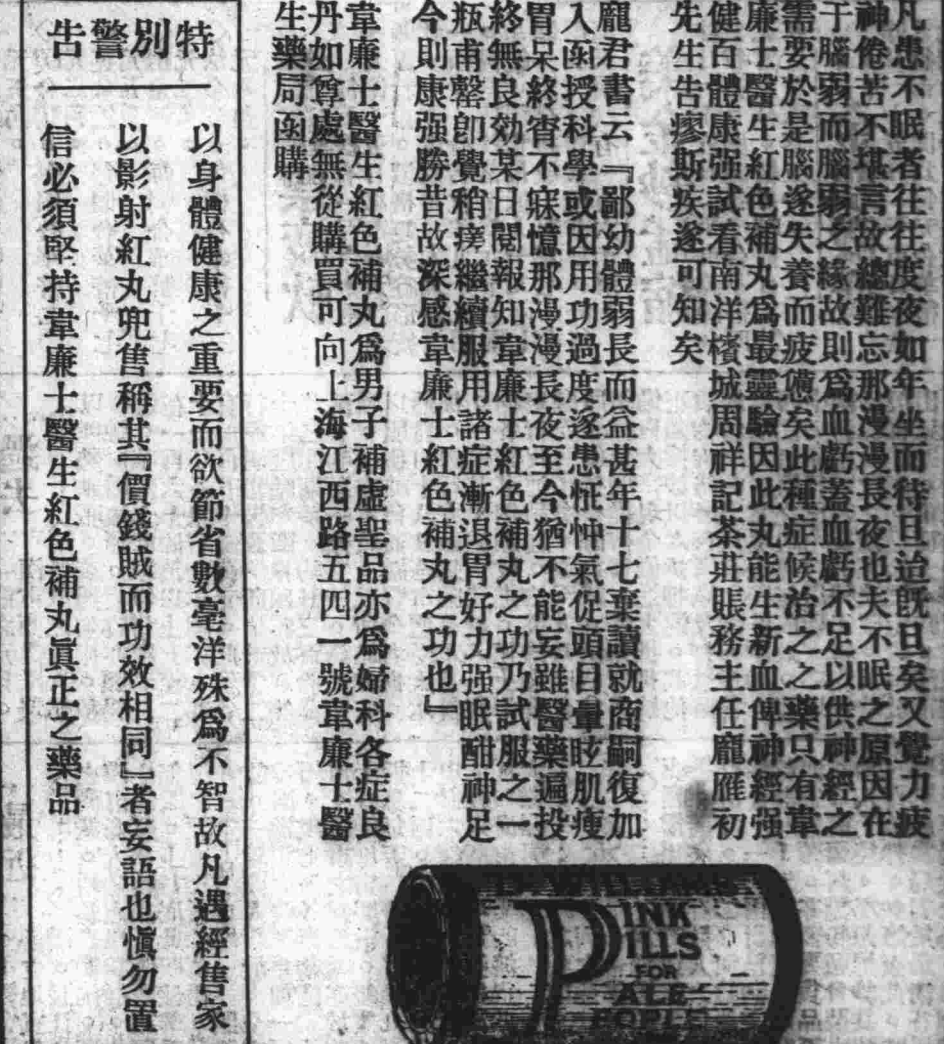 凡患不眠者往往度夜如年坐而待旦迨旣旦矣又覺力疲
神倦苦不堪言故總難忘那漫漫長夜也夫不眠之原因在
于腦弱而腦弱之緣故則爲血虧蓋血虧不足以供神經之
需要於是腦遂失養而疲憊矣此種症候治之之藥只有韋
廉士醫生紅色補丸爲最靈驗因此丸能生新血俾神經强
健百體康强試看南洋檳城周祥記茶莊賬務主任龐雁初
先生告瘳斯疾遂可知矣
龐君書云『鄙幼體弱長而益甚年十七棄讀就商嗣復加
入函授科學或因用功過度遂患怔忡氣促頭目暈眩肌瘦
胃呆終宵不寐憶那漫漫長夜至今猶不能妄雖醫藥遍投
終無良効某日閱報知韋廉士紅色補丸之功乃試服之一
瓶甫罄卽覺稍瘥繼續服用諸症漸退胃好力强眠酣神足
今則康强勝昔故深感韋廉士紅色補丸之功也』
韋廉士醫生紅色補丸爲男子補虛聖品亦爲婦科各症良
丹如尊處無從購買可向上海江西路五四一號韋廉士醫
生藥局函購
特別警告
以身體健康之重要而欲節省數毫洋殊爲不智故凡遇經售家
以影射紅丸兜售稱其『價錢賊而功效相同』者妄語也愼勿置
信必須堅持韋廉士醫生紅色補丸眞正之藥品
DR WILLIAMS
PINK
PILLS
FOR
PALE
PEOPLE